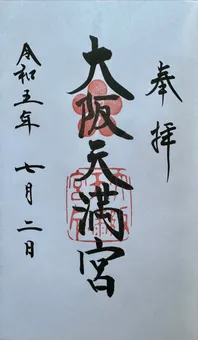 奉拝
大阪天満宮
令和五年 七月二日